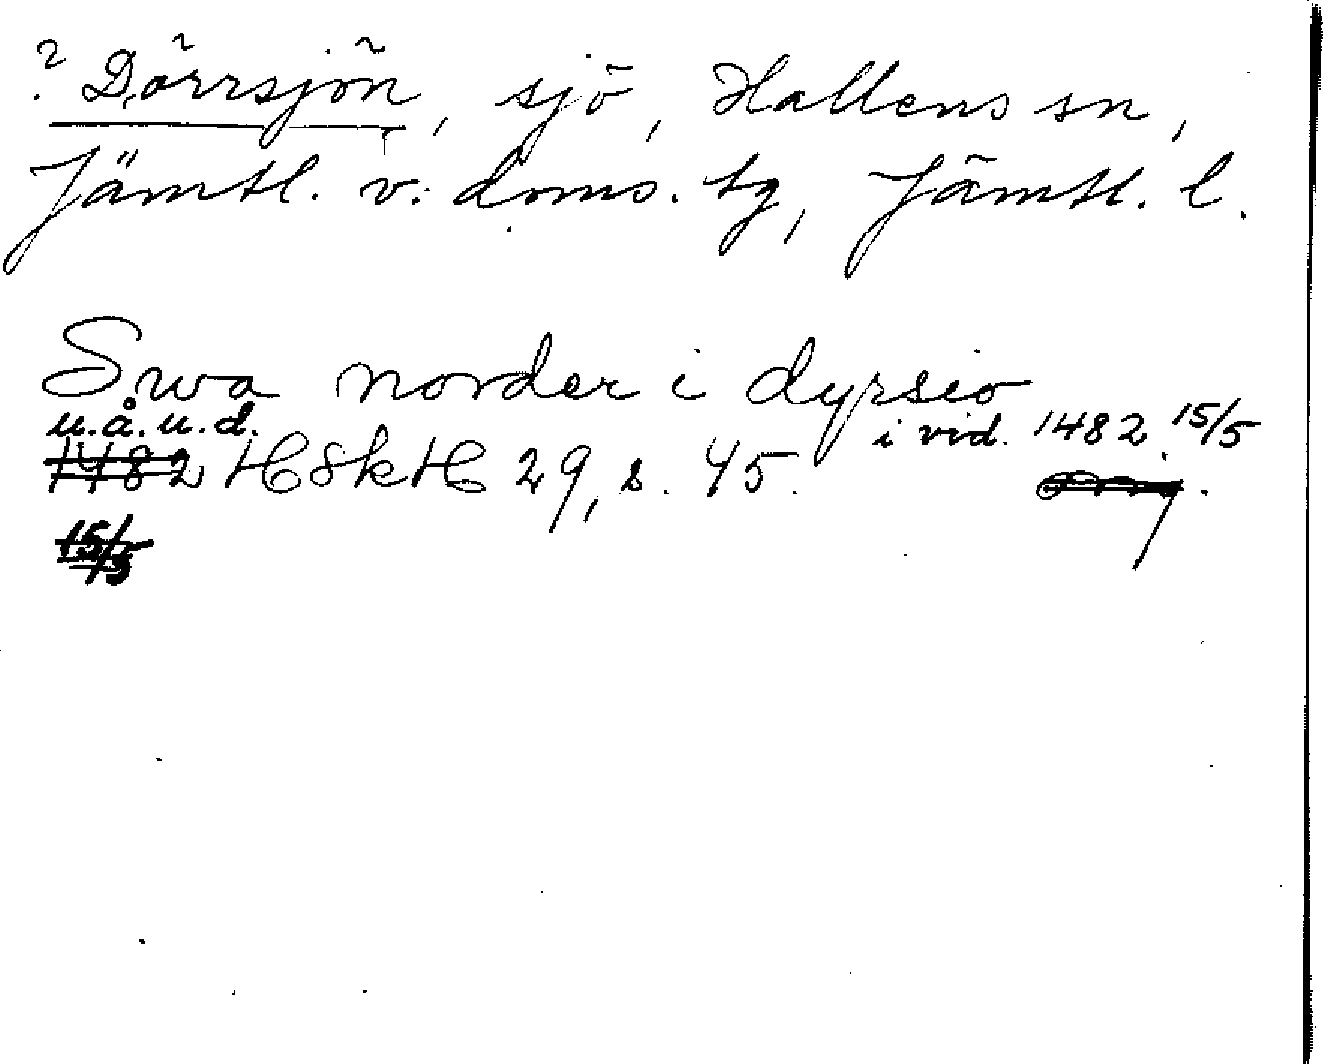 ? Dörrsjön, sjö, Hallens sn,
Jämtl. v. doms. tg, Jämtl. l.
Swa norder i dyrsio
u.å.u.d. i vid. 1482 15/5
1482 HSkH 29, s. 45.
15/5